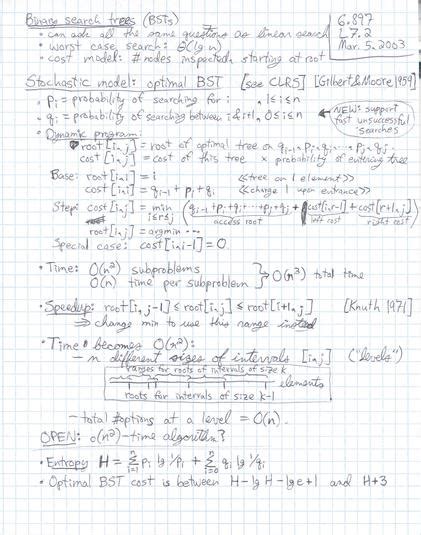 Binary search trees (BSTs)
6.897
L7.2
Mar. 5. 2003
• can ask all the same questions as linear search
• worst case search: Θ(lg n)
• cost model: # nodes inspected, starting at root
Stochastic model: optimal BST [see CLRS] [Gilbert & Moore 1959]
• p_i = probability of searching for i, 1≤i≤n
• q_i = probability of searching between i & i+1, 0≤i≤n
← NEW: support fast unsuccessful searches
• Dynamic program:
root[i,j] = root of optimal tree on q_{i-1}, p_i, q_i, ..., p_j, q_j
cost[i,j] = cost of this tree × probability of entering tree
Base: root[i,i] = i <<tree on 1 element>>
cost[i,i] = q_{i-1} + p_i + q_i <<charge 1 upon entrance>>
Step: cost[i,j] = min i≤r≤j (q_{i-1} + p_i + ... + p_j + q_j + cost[i,r-1] + cost[r+1,j])
access root left cost right cost
root[i,j] = argmin ...
Special case: cost[i,i-1] = 0.
• Time: O(n²) subproblems
O(n) time per subproblem } → O(n³) total time
• Speedup: root[i,j-1] ≤ root[i,j] ≤ root[i+1,j] [Knuth 1971]
⇒ change min to use this range instead
• Time becomes O(n²):
– n different sizes of intervals [i,j] ("levels")
ranges for roots of intervals of size k
elements
roots for intervals of size k-1
– total #options at a level = O(n).
OPEN: o(n²)-time algorithm?
• Entropy H = Σ_{i=1}^{n} p_i lg 1/p_i + Σ_{i=0}^{n} q_i lg 1/q_i
• Optimal BST cost is between H – lg H – lg e + 1 and H + 3